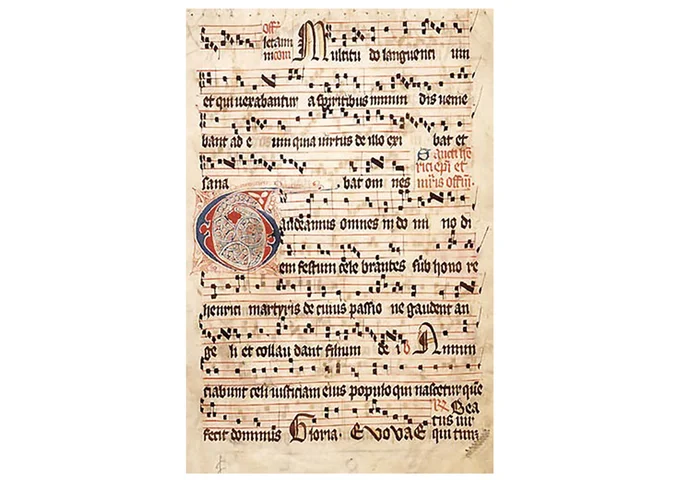 Off
letatur Multitu do languenti um
incom
et qui vexabantur a spiritibus inmun dis venie
bant ad e um quia virtus de illo exi bat et
sana bat om nes Sancti Hē
rici epī et
mris offm
Gaudeamus omnes in do mi no di
em festum cele brantes sub hono re
henrici martyris de cuius passio ne gaudent an
ge li et collau dant filium de i Annun
ciabunt celi iusticiam eius populo qui nascetur quē
fecit dominus Gloria. EVOVAE Bea
tus vir
qui tim